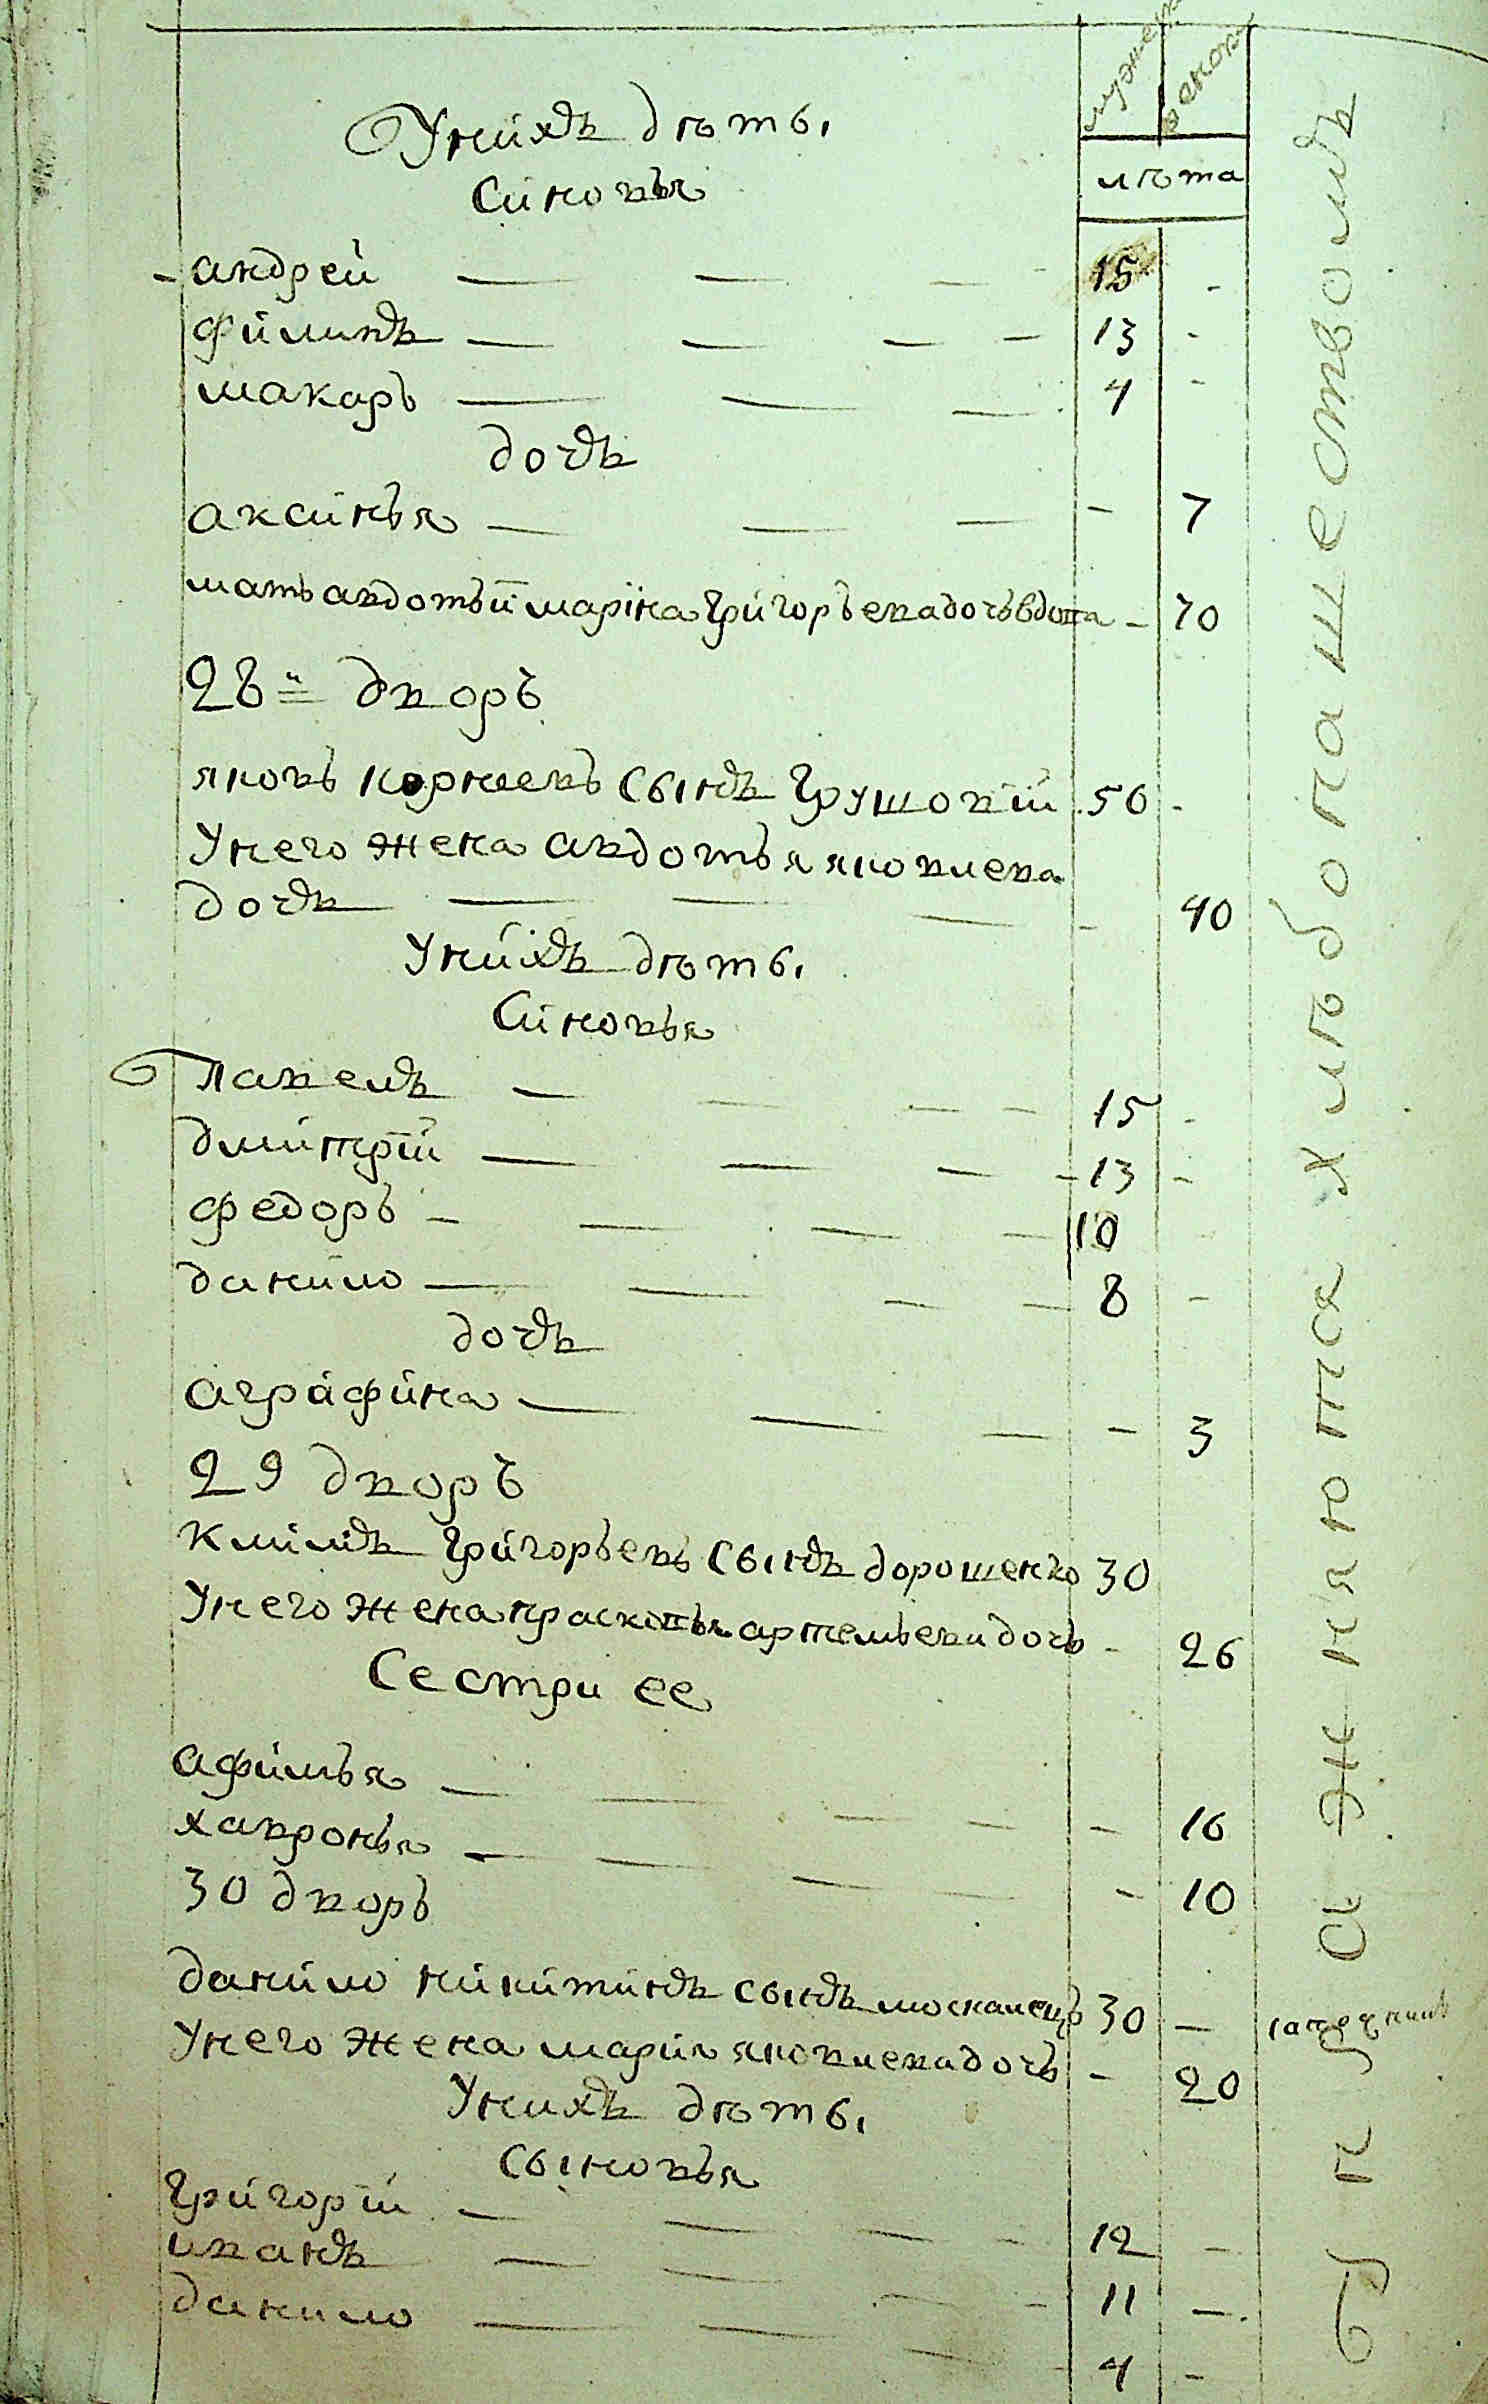 мужеск женск
лѣта
Унихъ дѣты
Синовья
андрей — — — 15 -
филипъ — — — — 13 -
макаръ — — — 4 -
дочъ
аксинья — — — - 7
мать авдотьи марина григорьева дочь вдова - 70
28й дворъ
яковъ корнеевъ сынъ Грушовий 50 -
Унего жена авдотья яковлева
дочъ — — — - 40
Унихъ дѣты
Синовья
павелъ — — — — 15 -
дмитрій — — — - 13 -
федоръ — — — — 10
данило — — — — 8 -
дочъ
аграфина — — — - 3
29 дворъ
климъ григорьевъ сынъ дорошенко 30
Унего жена прасковья артемьева дочь - 26
Сестри ее
афимья — — — — - 16
хавронья — — — - 10
30 дворъ
данило никитинъ сынъ москалецъ 30 —
Унего жена мария яковлева дочь - 20
Унихъ дѣты
сыновья
григорій — — — — 12 -
иванъ — — — - 11 —
данило — — — 4 -
упражняются хлѣбопашествомъ